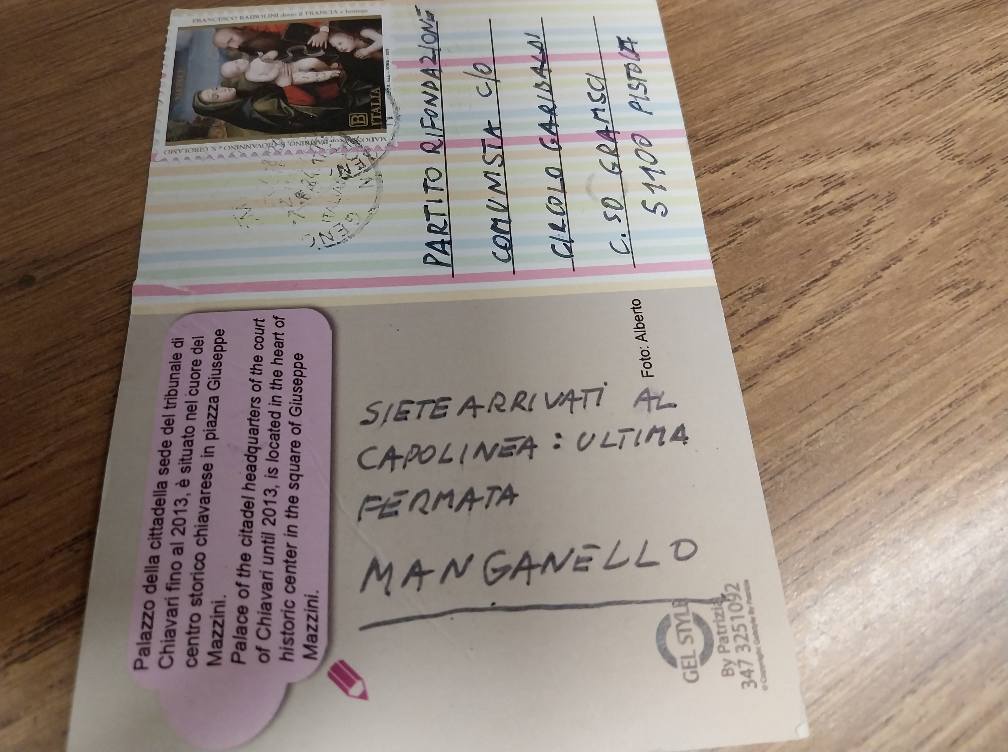 Palazzo della cittadella sede del tribunale di
Chiavari fino al 2013, è situato nel cuore del
centro storico chiavarese in piazza Giuseppe
Mazzini.
Palace of the citadel headquarters of the court
of Chiavari until 2013, is located in the heart of
historic center in the square of Giuseppe
Mazzini.
SIETE ARRIVATI AL
CAPOLINEA: ULTIMA
FERMATA
MANGANELLO
GEL STYLE
By Patrizia
347 3251092
Foto: Alberto
ITALIA
B
PARTITO RIFONDAZIONE
COMUNISTA C/O
CIRCOLO GARIBALDI
C.SO GRAMSCI
51100 PISTOIA